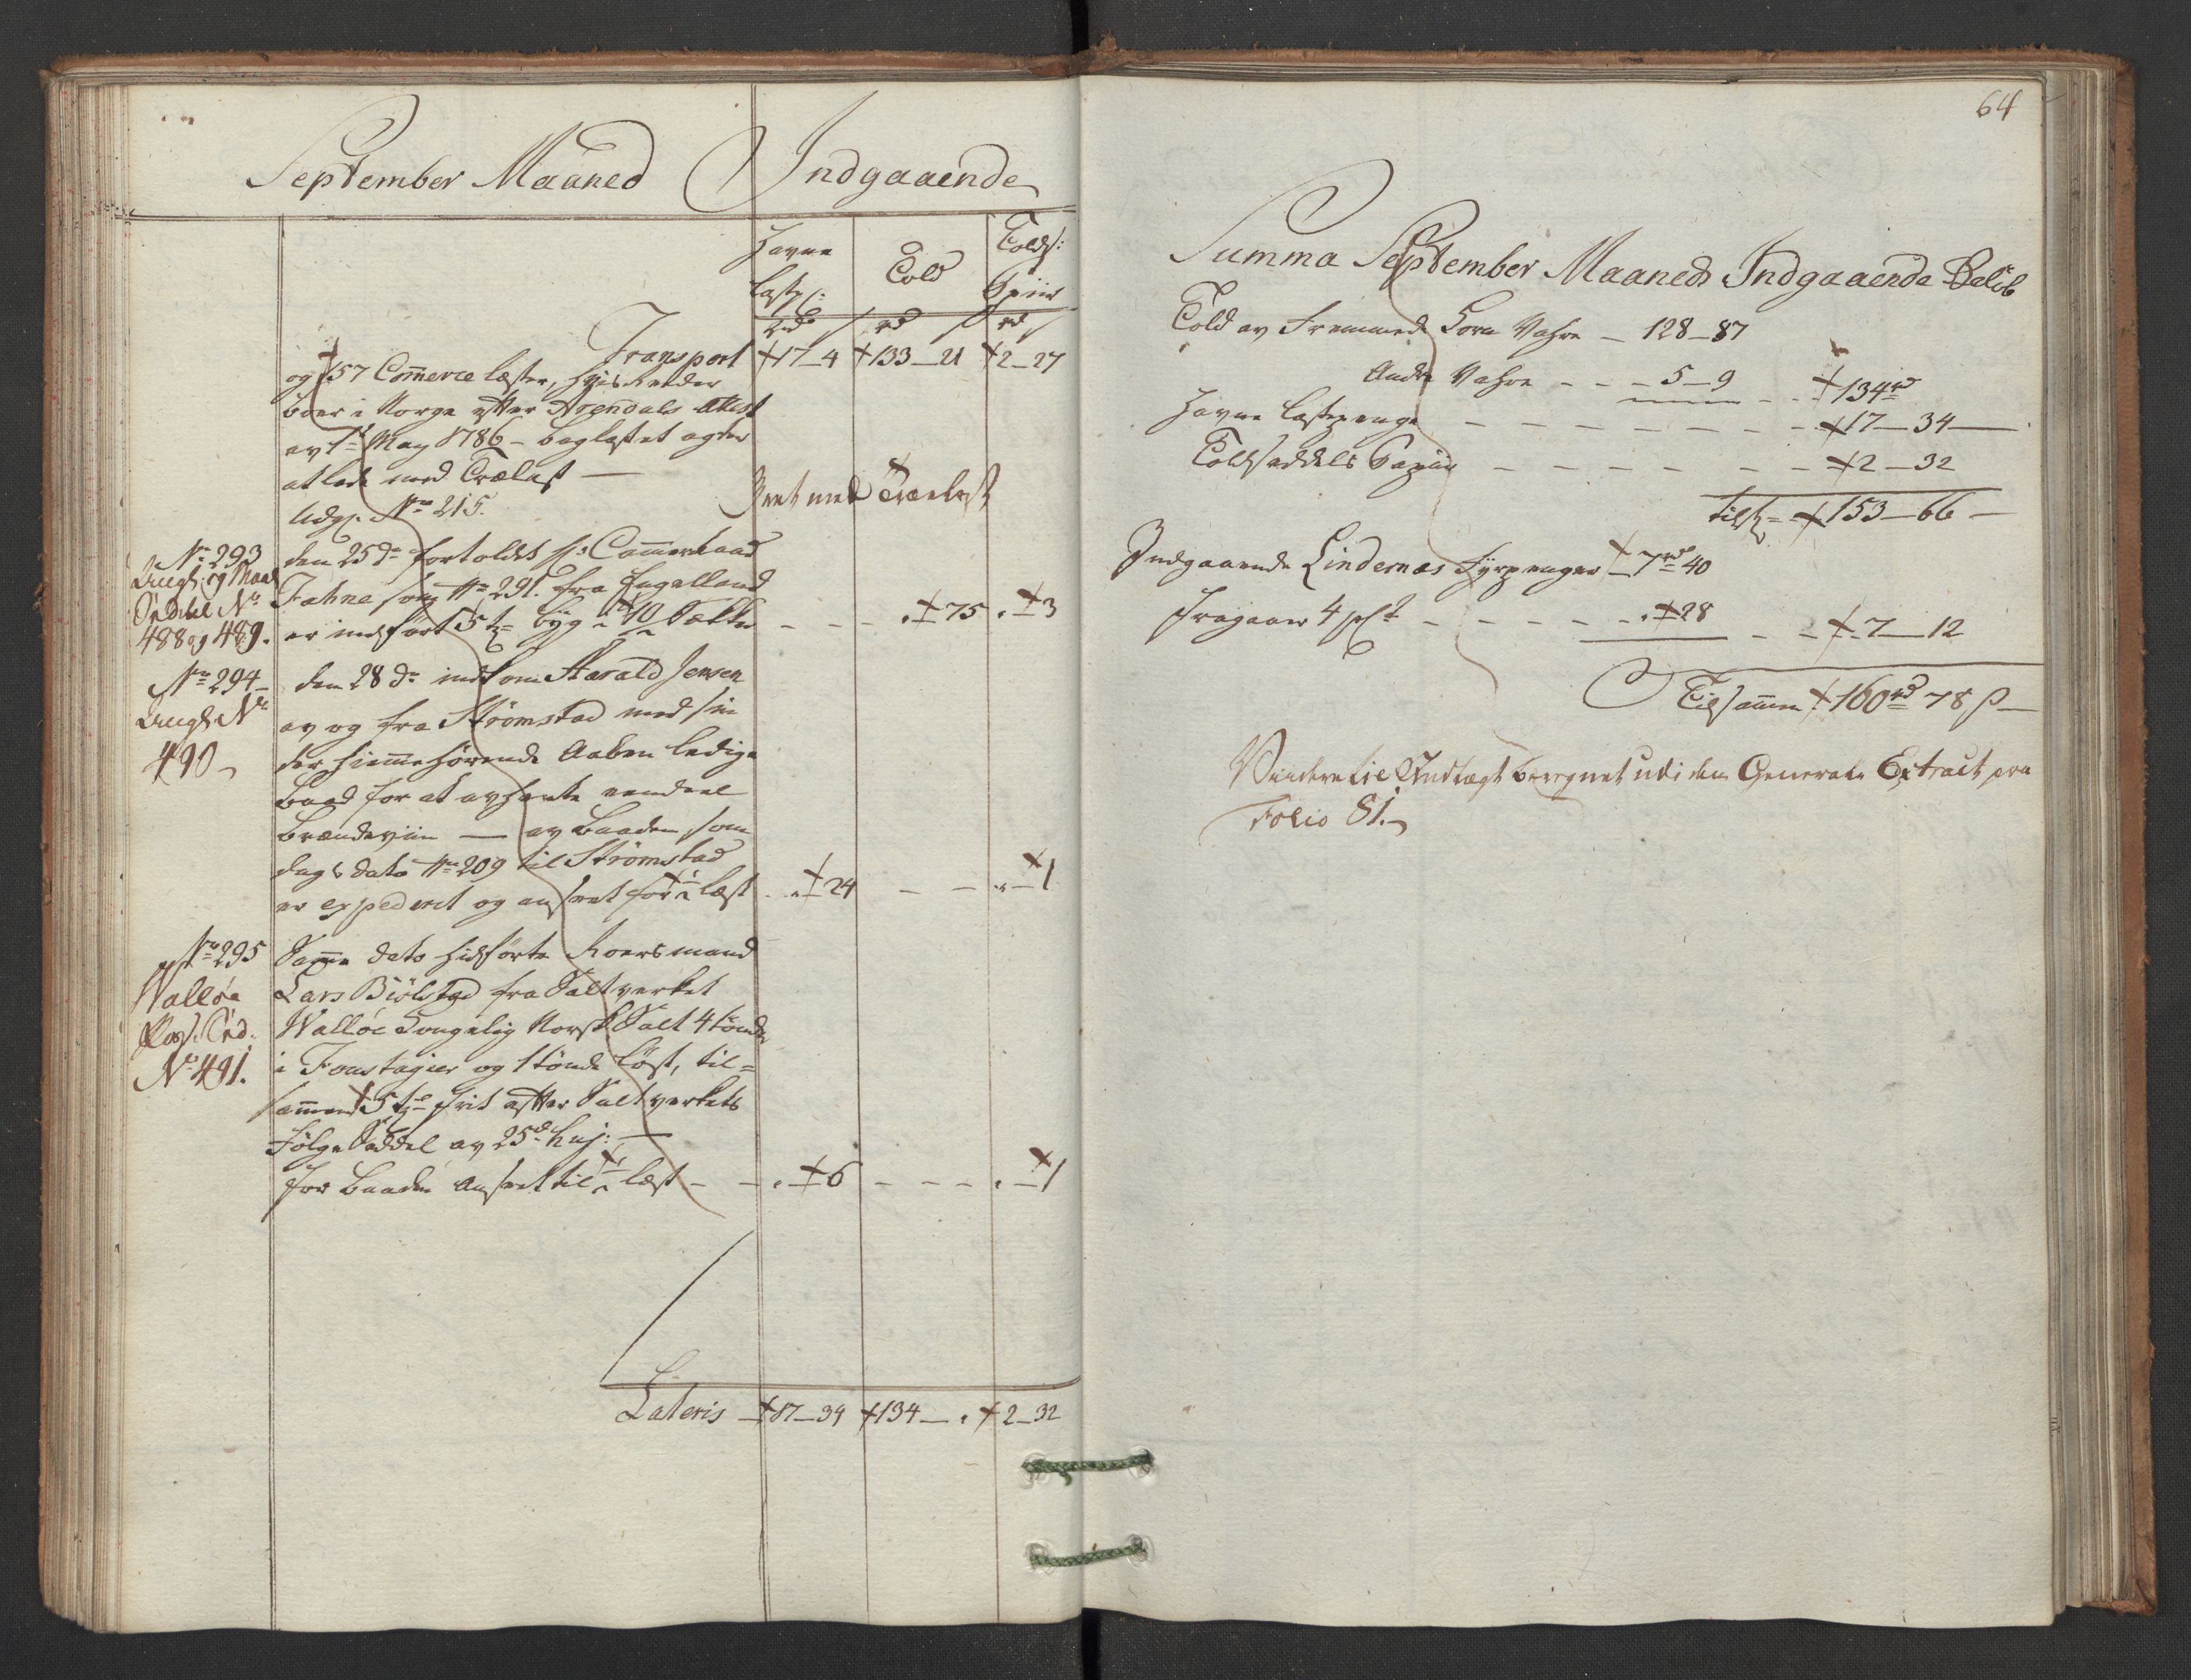 September Maaned Indgaaende
Havne
Lastp: Told Toldse:
Papiir
rd s rd s rd s
Transport 17_4 133_21 2_27
og 57 Commerce læster, hvis Reeder
boer i Norge efter Arendals Attest
av 1te May 1786 – baglastet agter
at lade med Trælast —
Udg: No 215. Pret: med Trælast
No 293
Angl: og Maal
Seddel No
488 og 489.
den 25de fortoldt Hr Cammerraad
Fahne som No 291. fra Engelland
er indført 5 tr Byg 10 Sække _ _ _ . 75 . 3
No 294
Angl: No
490
den 28 do indkom Harald Jensen
av og fra Strømstad med sin
der hiemmehørende Aaben ledige
Baad for at avhente eendeel
Brændeviin — av Baaden som
dags dato No 209 til Strømstad
er expederet og anseet for 1 læst . 24 _ _ . 1
No 295
Walløe
Pass: Sed:
No 491.
Samme dato hidførte Koersmand
Lars Biølstad fra Saltverket
Walløe Kongelig Norsk Salt 4 tønder
i Foustagier og 1 tønde løst, til=
sammen 5 tr frit efter Saltverkets
Følge Seddel av 25de huj: —
for Baaden anseet til 1 læst _ _ . 6 _ _ _ . 1
Lateris 17_34 134_ . 2_32
64
Summa September Maaneds Indgaaende Beløb
Told av Fremmede Korn Vahre _ 128_87
Andre Vahre _ _ _ 5_9 _ _ 134rd
Havne Lastepenge _ _ _ _ _ _ _ 17_34_
Toldseddels Papiir _ _ _ _ _ _ _ 2_32
tils: 153_66_
Indgaaende Lindernæs Fyrpenger _ 7rd 40
fragaaer 4 pCt _ _ _ _ _ . 28 _ _ 7_12
Tilsammen 160rd 78 s_
Videre til Indtægt beregnet udi den Generale Extract paa
Folio 81.